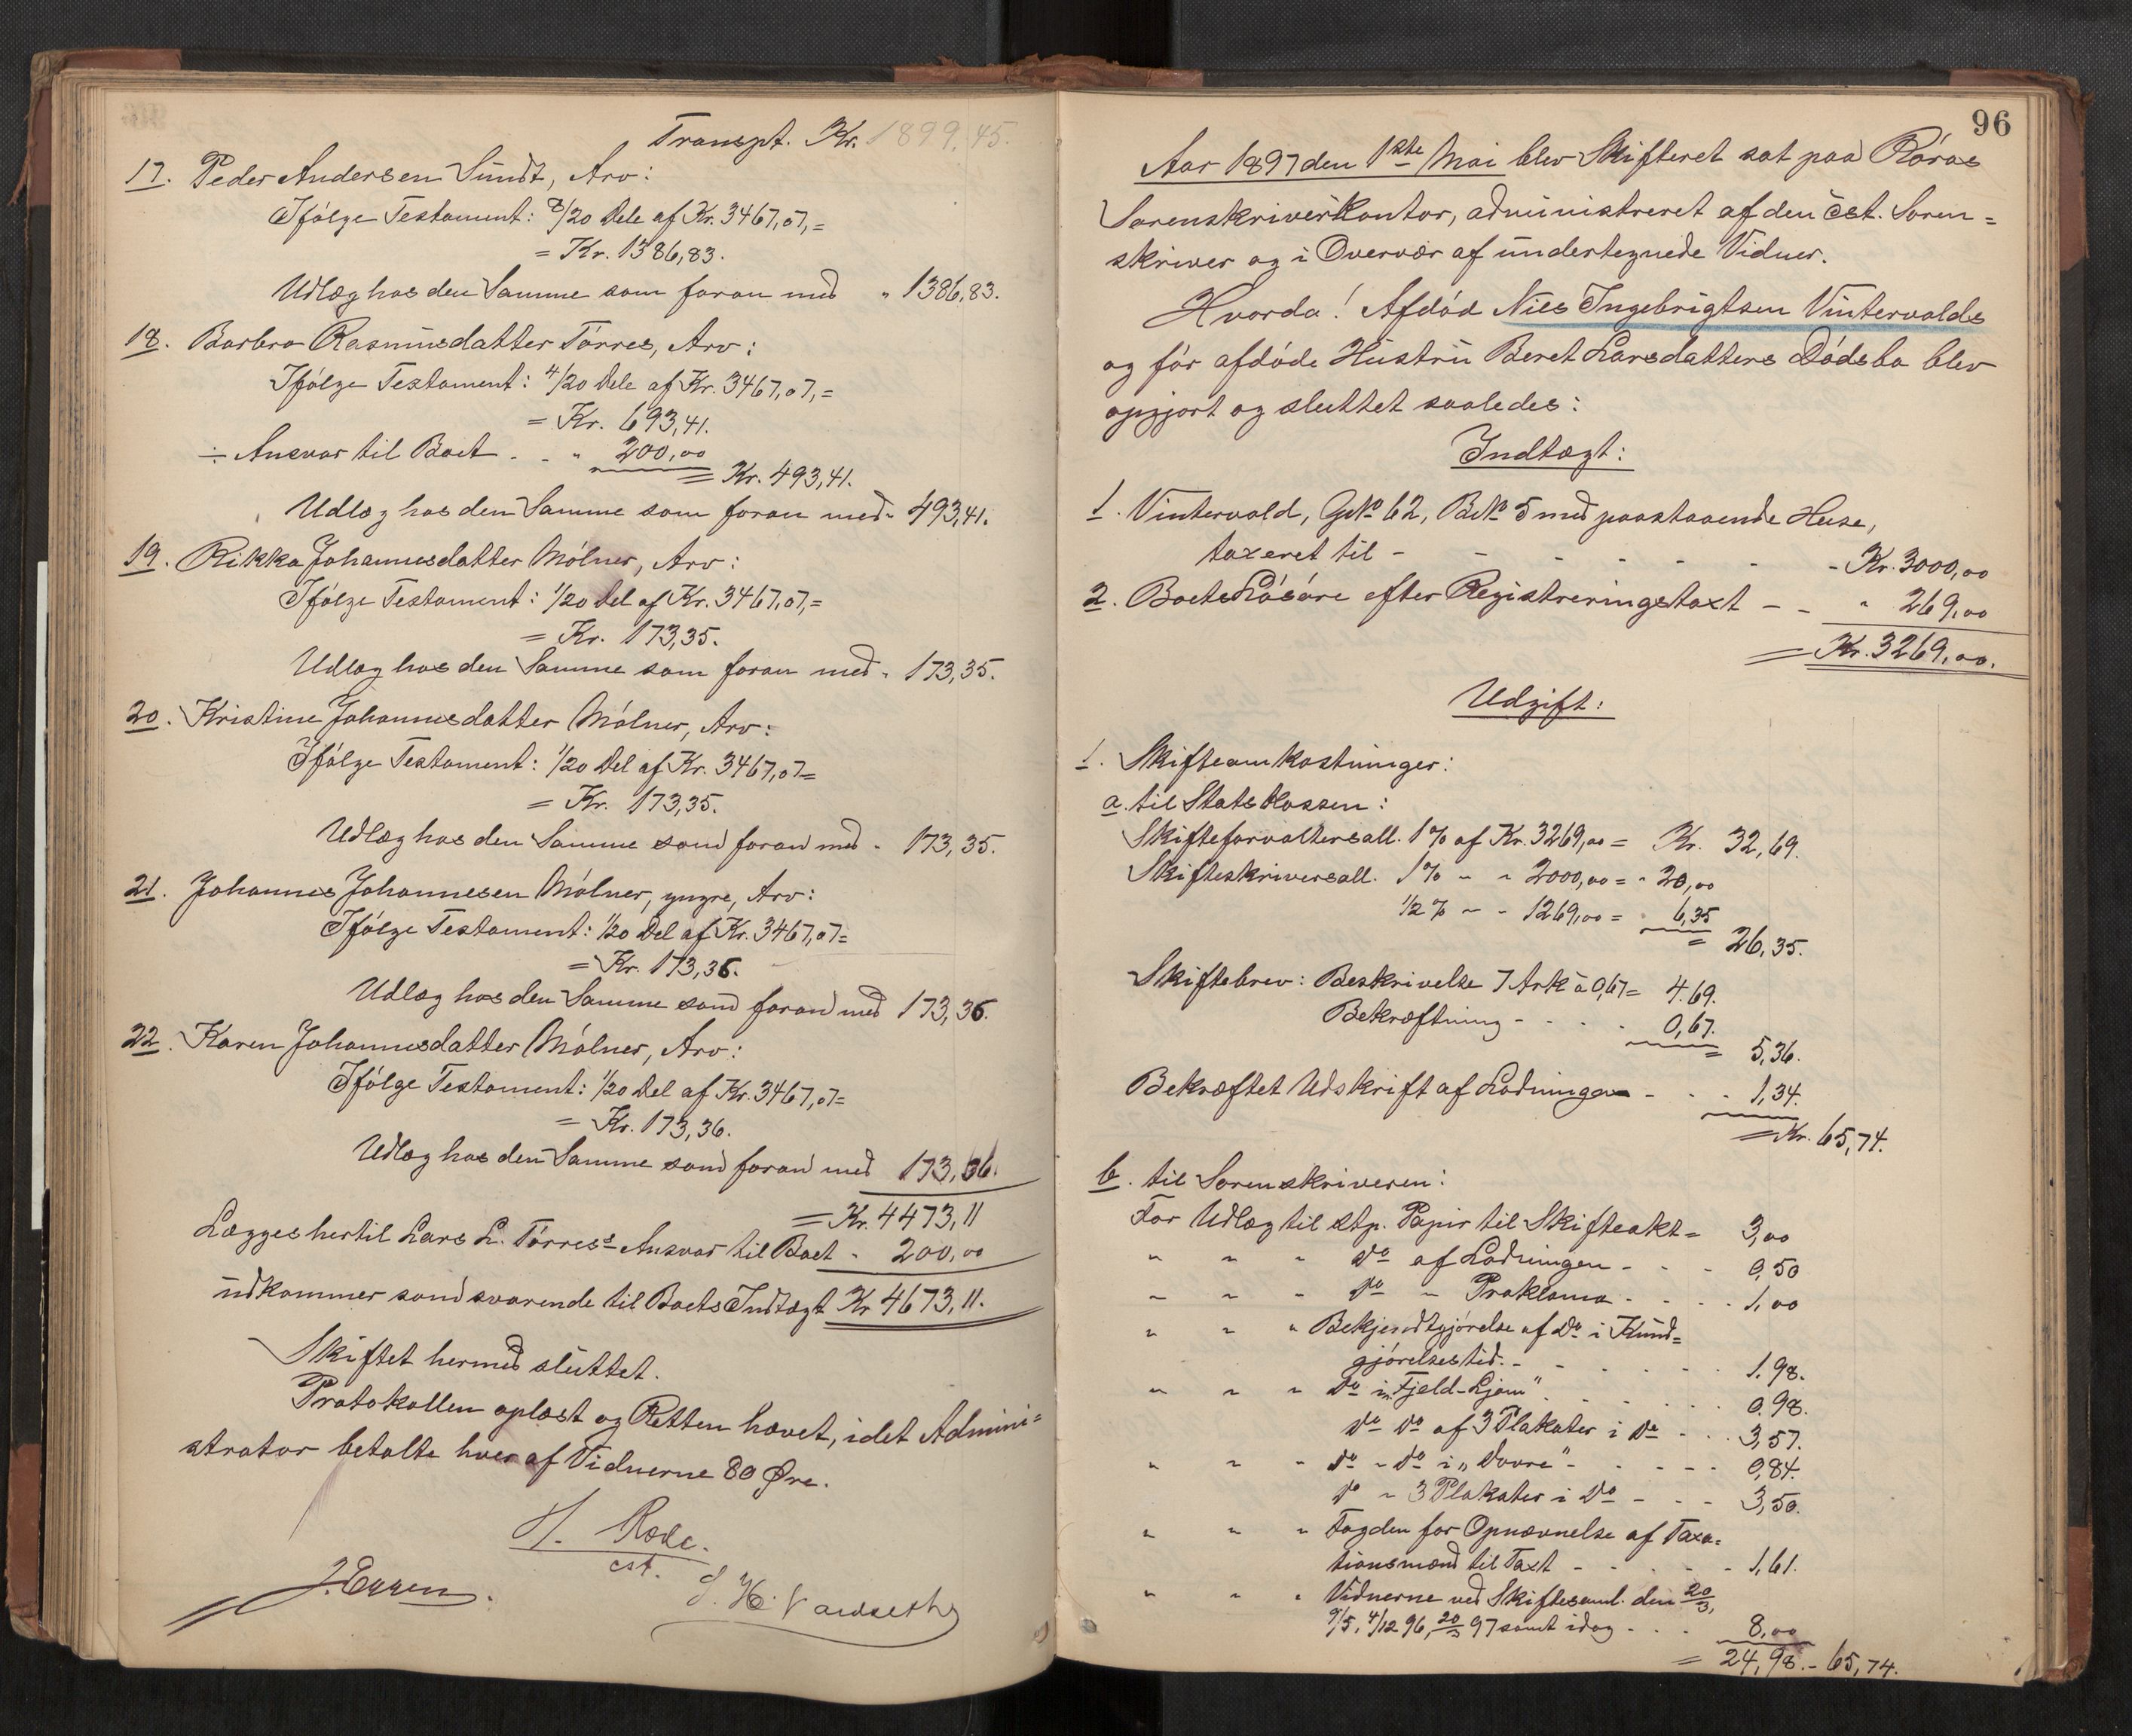 Transpt. Kr. 1899,45.
17. Peder Andersen Sundt, Arv:
Ifølge Testament: 8/20 Dele af Kr. 3467,07,=
= Kr. 1386,83.
Udlæg hos den Samme som foran med " 1386,83.
18. Barbro Rasmusdatter Tørres, Arv:
Ifølge Testament: 4/20 Dele af Kr. 3467,07,=
= Kr. 693,41.
÷ Ansvar til Boet - - " 200,00
= Kr. 493,41.
Udlæg hos den Samme som foran med " 493,41.
19. Rikka Johannesdatter Mølner, Arv:
Ifølge Testament: 1/20 Del af Kr. 3467,07,=
= Kr. 173,35.
Udlæg hos den Samme som foran med " 173,35.
20. Kristine Johannesdatter Mølner, Arv:
Ifølge Testament: 1/20 Del af Kr. 3467,07=
= Kr. 173,35.
Udlæg hos den Samme som foran med " 173,35.
21. Johannes Johannesen Mølner, yngre, Arv:
Ifølge Testament: 1/20 Del af Kr. 3467,07=
= Kr. 173,36.
Udlæg hos den Samme som foran med 173,36.
22. Karen Johannesdatter Mølner, Arv:
Ifølge Testament: 1/20 Del af Kr. 3467,07=
= Kr. 173,36.
Udlæg hos den Samme som foran med 173,36.
= Kr. 4473,11
Lægges hertil Lars L. Tørres's Ansvar til Boet " 200,00
udkommer som svarende til Boets Indtægt Kr 4673,11.
Skiftet hermed sluttet.
Protokollen oplæst og Retten hævet, idet Admini=
strator betalte hver af Vidnerne 80 Øre.
H. Rode.
cst.
J. Engen.
96
Aar 1897 den 1ste Mai blev Skifteret sat paa Røros
Sorenskriverkontor, administreret af den cst. Soren=
skriver og i Overvær af undertegnede Vidner.
Hvorda! Afdød Nils Ingebrigtsen Vintervolds
og før afdøde Hustru Beret Larsdatters Dødsbo blev
opgjort og sluttet saaledes:
Indtægt:
1. Vintervold, GNo 62, BNo 5 med paastaaende Huse,
taxeret til - - - - - - Kr. 3000,00
2. Boets Løsøre efter Registreringstaxt - - " 269,00
= Kr. 3269,00.
Udgift:
1. Skifteomkostninger:
a. til Statskassen:
Skifteforvaltersall. 1% af Kr. 3269,00 = Kr. 32,69.
Skifteskriversall. 1% - - 2000,00 = " 20,00
1/2 % - - 1269,00 = " 6,35
= 26,35.
Skiftebrev: Beskrivelse 7 Ark à 0,67 = 4.69.
Bekræftning - - - - 0,67.
= 5,36.
Bekræftet Udskrift af Lodningen - - - 1,34.
= Kr. 65,74.
b. til Sorenskriveren:
For Udlæg til stp. Papir til Skifteakt - 3,00
" " " do af Lodningen - - - 0,50
" " " do " Proklama - - - - 1,00
" " " Bekjendtgjørelse af do i Kund=
gjørelsestid. - - - - - - 1,98.
" " " do i "Fjeld-Ljom" - - - - - 0.98.
do do af 3 Plakater i do - - - 3,57.
" " " do - do i "Dovre" - - - - - 0,84.
do - 3 Plakater i do - - - - 3,50.
" " " Fogden for Opnævnelse af Taxa=
tionsmænd til Taxt - - - - - 1,61.
" " " Vidnerne ved Skiftesaml. den 20/3,
9/5, 4/12 96, 20/3 97 samt idag - - - 8,00
= 24,98. - 65,74.